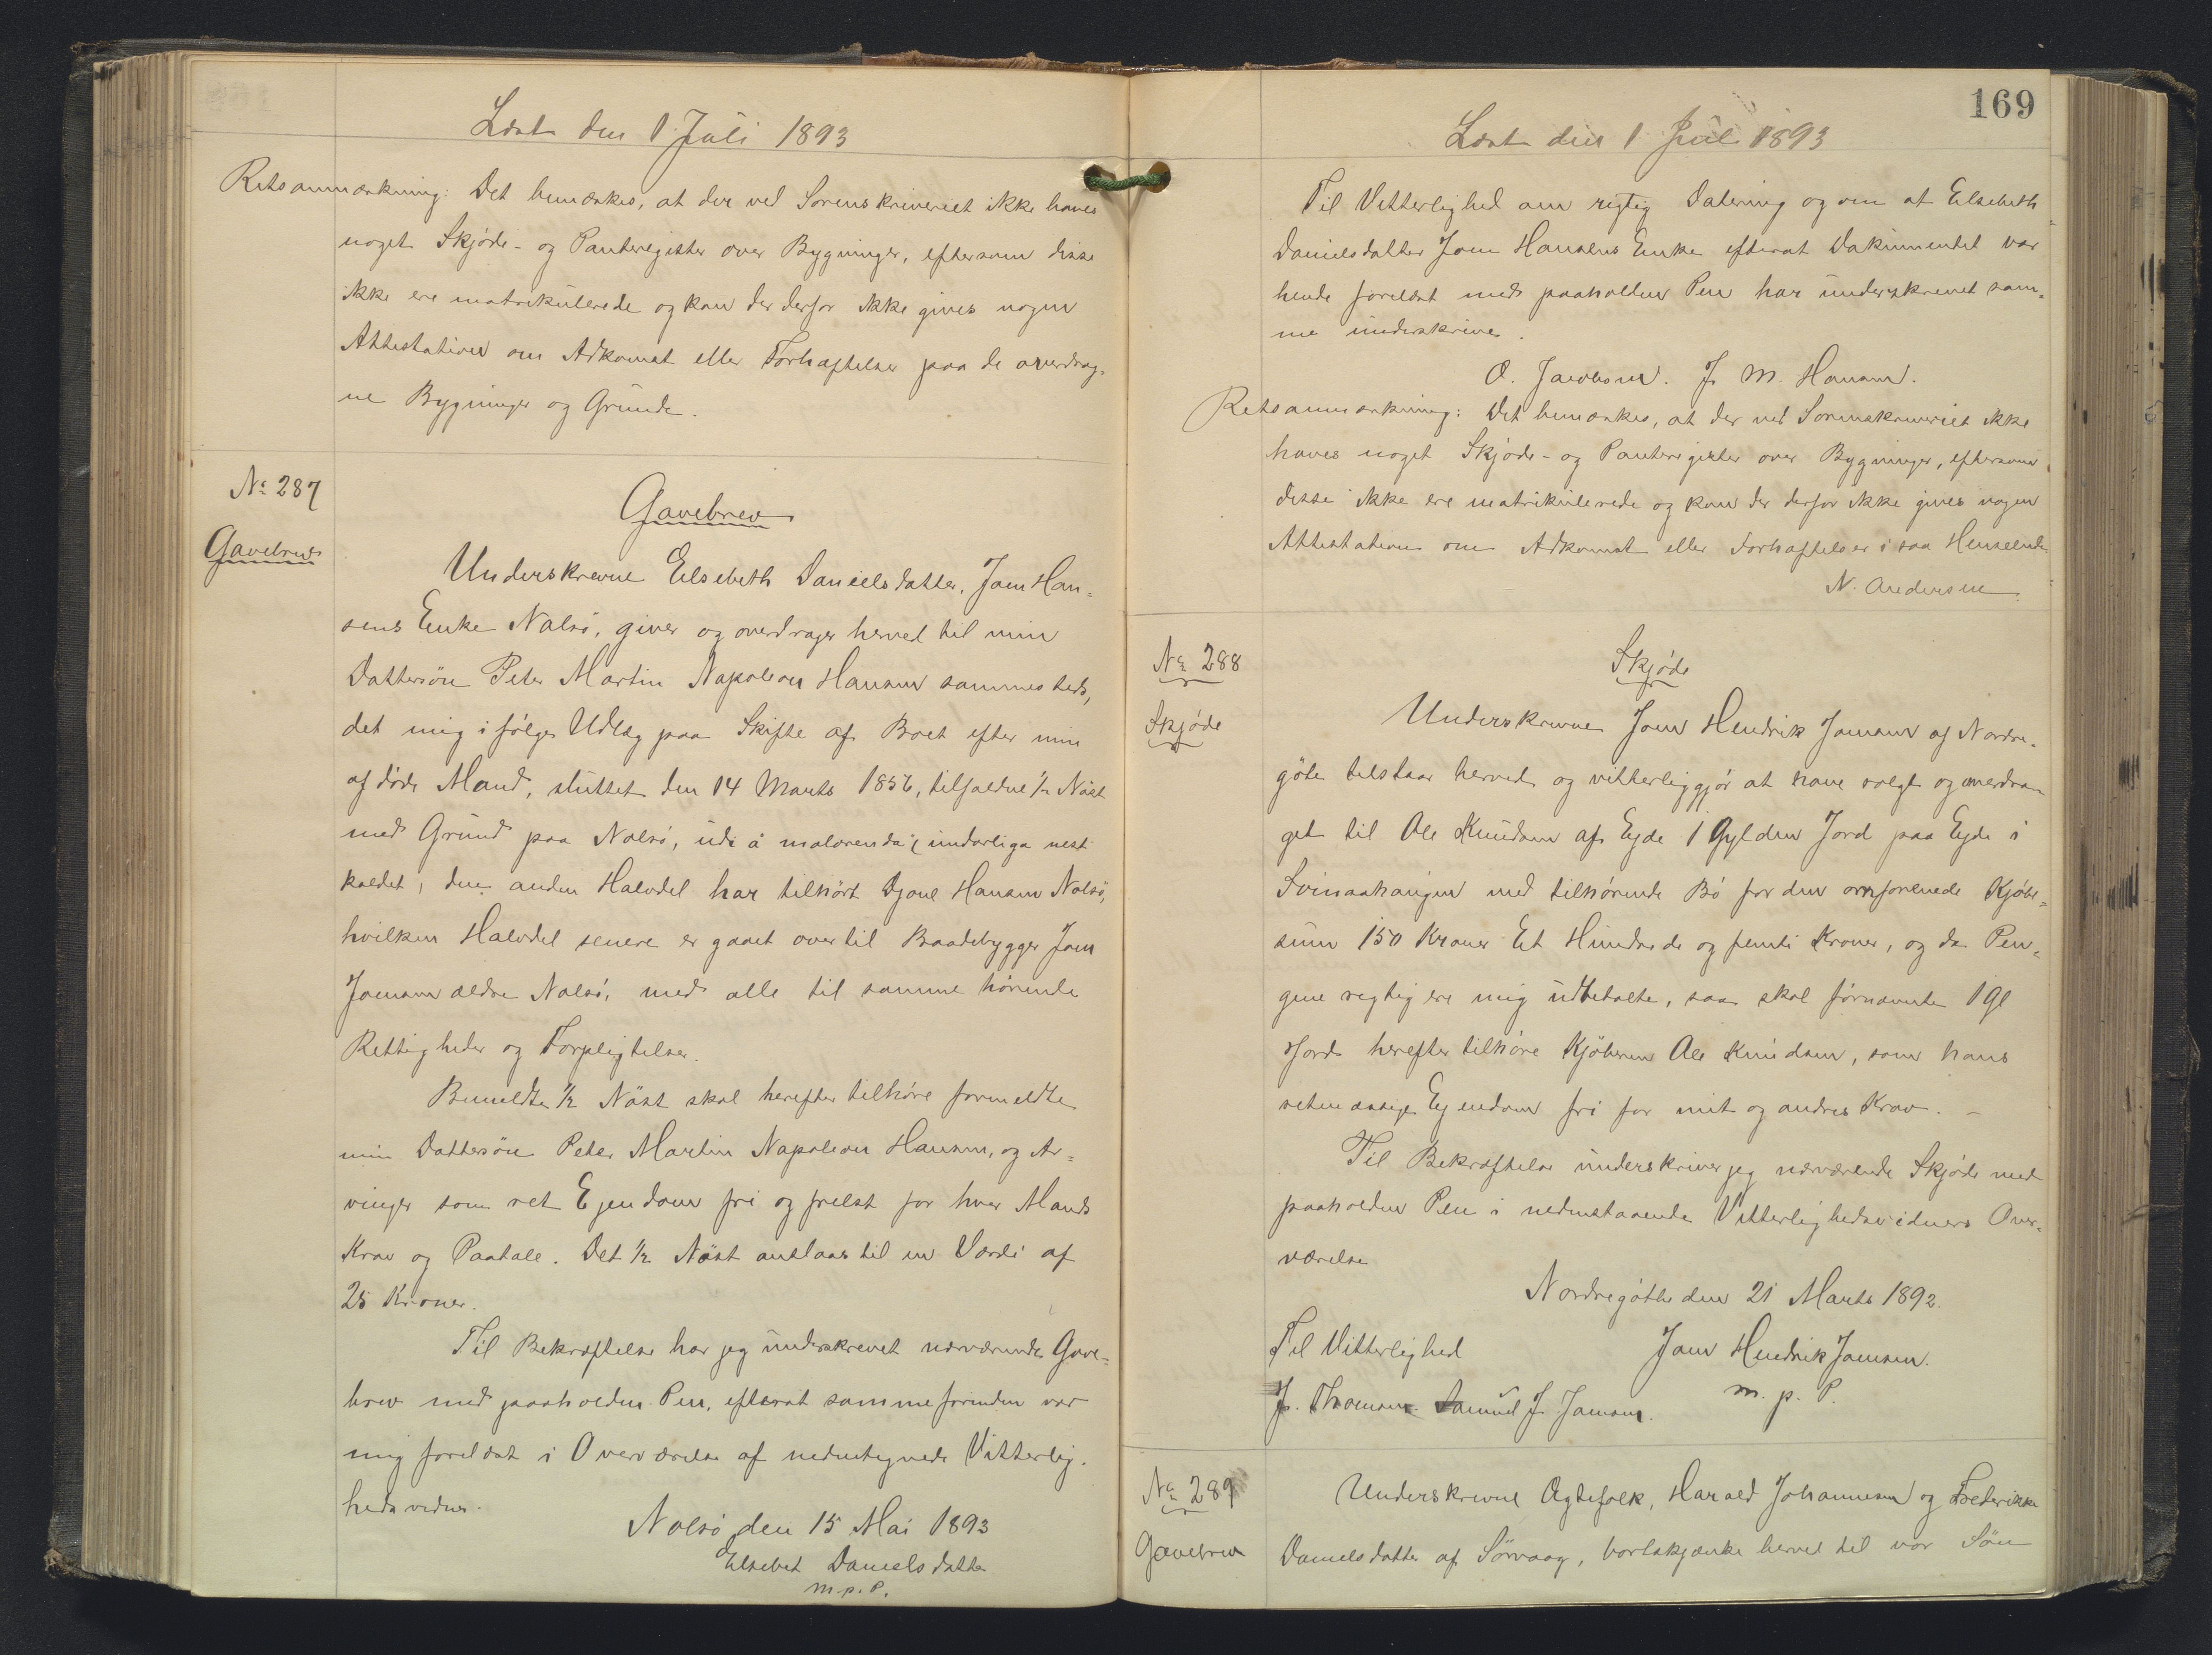 Læst den 1 Juli 1893
Retsanmærkning: Det bemærkes, at der ved Sorenskriveriet ikke haves
noget Skjöde- og Panteregister over Bygninger, eftersom disse
ikke ere matrikulerede og kan der derfor ikke gives nogen
Attestation om Adkomst eller Forhæftelser paa de overdrag-
ne Bygninger og Grunde.
No 287
Gavebrev
Gavebrev
Underskrevne Elsebeth Danielsdatter, Joen Han-
sens Enke Nolsö, giver og overdrager herved til min
Dattersön Peter Martin Napoleon Hansen sammesteds,
det mig ifölge Udlæg paa Skifte af Boet efter min
afdöde Mand, sluttet den 14 Marts 1856, tilfaldne 1/2 Nöst
med Grund paa Nolsö, udi á malarenda (indarliga nest
kaldet, den anden Halvdel har tilhört Djone Hansen Nolsö,
hvilken Halvdel senere er gaaet over til Baadebygger Joen
Joensen ældre Nolsö, med alle til samme hörende
Rettigheder og Forpligtelser.
Bemeldte 1/2 Nöst skal herefter tilhöre formeldte
min Dattersön Peter Martin Napoleon Hansen, og Ar-
vinger som ret Ejendom fri og frelst for hver Mands
Krav og Paatale. Det 1/2 Nöst anslaas til en Værdi af
25 Kroner.
Til Bekræftelse har jeg underskrevet nærværende Gave-
brev med paaholden Pen, efterat samme forinden var
mig forelæst i Overværelse af nedentegnede Vitterlig-
hedsvidner.
Nolsö den 15 Mai 1893
Elsebet Danielsdatter
m. p. P.
169
Læst den 1 Juli 1893
Til Vitterlighed om rigtig Datering og om at Elsebeth
Danielsdatter Joen Hansens Enke efterat Dokumentet var
hende forelæst med paaholden Pen har underskrevet sam-
me underskrives.
O. Jacobsen. J. M. Hansen.
Retsanmærkning: Det bemærkes, at der ved Sorenskriveriet ikke
haves noget Skjöde- og Panteregister over Bygninger, eftersom
disse ikke ere matrikulerede og kan der derfor ikke gives nogen
Attestation om Adkomst eller Forhæftelser i saa Henseende
N. Andersen
No 288
Skjöde
Skjöde
Underskrevne Joen Hendrik Joensen af Nordre-
göte tilstaar herved og vitterliggjör at have solgt og overdra-
get til Ole Knudsen af Ejde 1 Gylden Jord paa Ejde i
Svinaahaugen med tilhörende Bö for den omforenede Kjöbe-
sum 150 Kroner Et Hundrede og femti Kroner, og da Pen-
gene rigtig ere mig udbetalte, saa skal förnævnte 1 Gl
Jord herefter tilhöre Kjöberen Ole Knudsen, som hans
retmæssige Ejendom fri for mit og andres Krav. –
Til Bekræftelse underskriver jeg nærværende Skjöde med
paaholden Pen i nedenstaaende Vitterlighedsvidners Over-
værelse
Nordregöthe den 21 Marts 1892.
Til Vitterlighed
Joen Hendrik Joensen.
m. p. P.
J. Thomsen. Samuel J. Joensen.
No 289
Gavebrev
Underskrevne Ægtefolk, Harald Johannesen og Frederikke
Danielsdatter af Sörvaag, bortskjænke herved til vor Sön